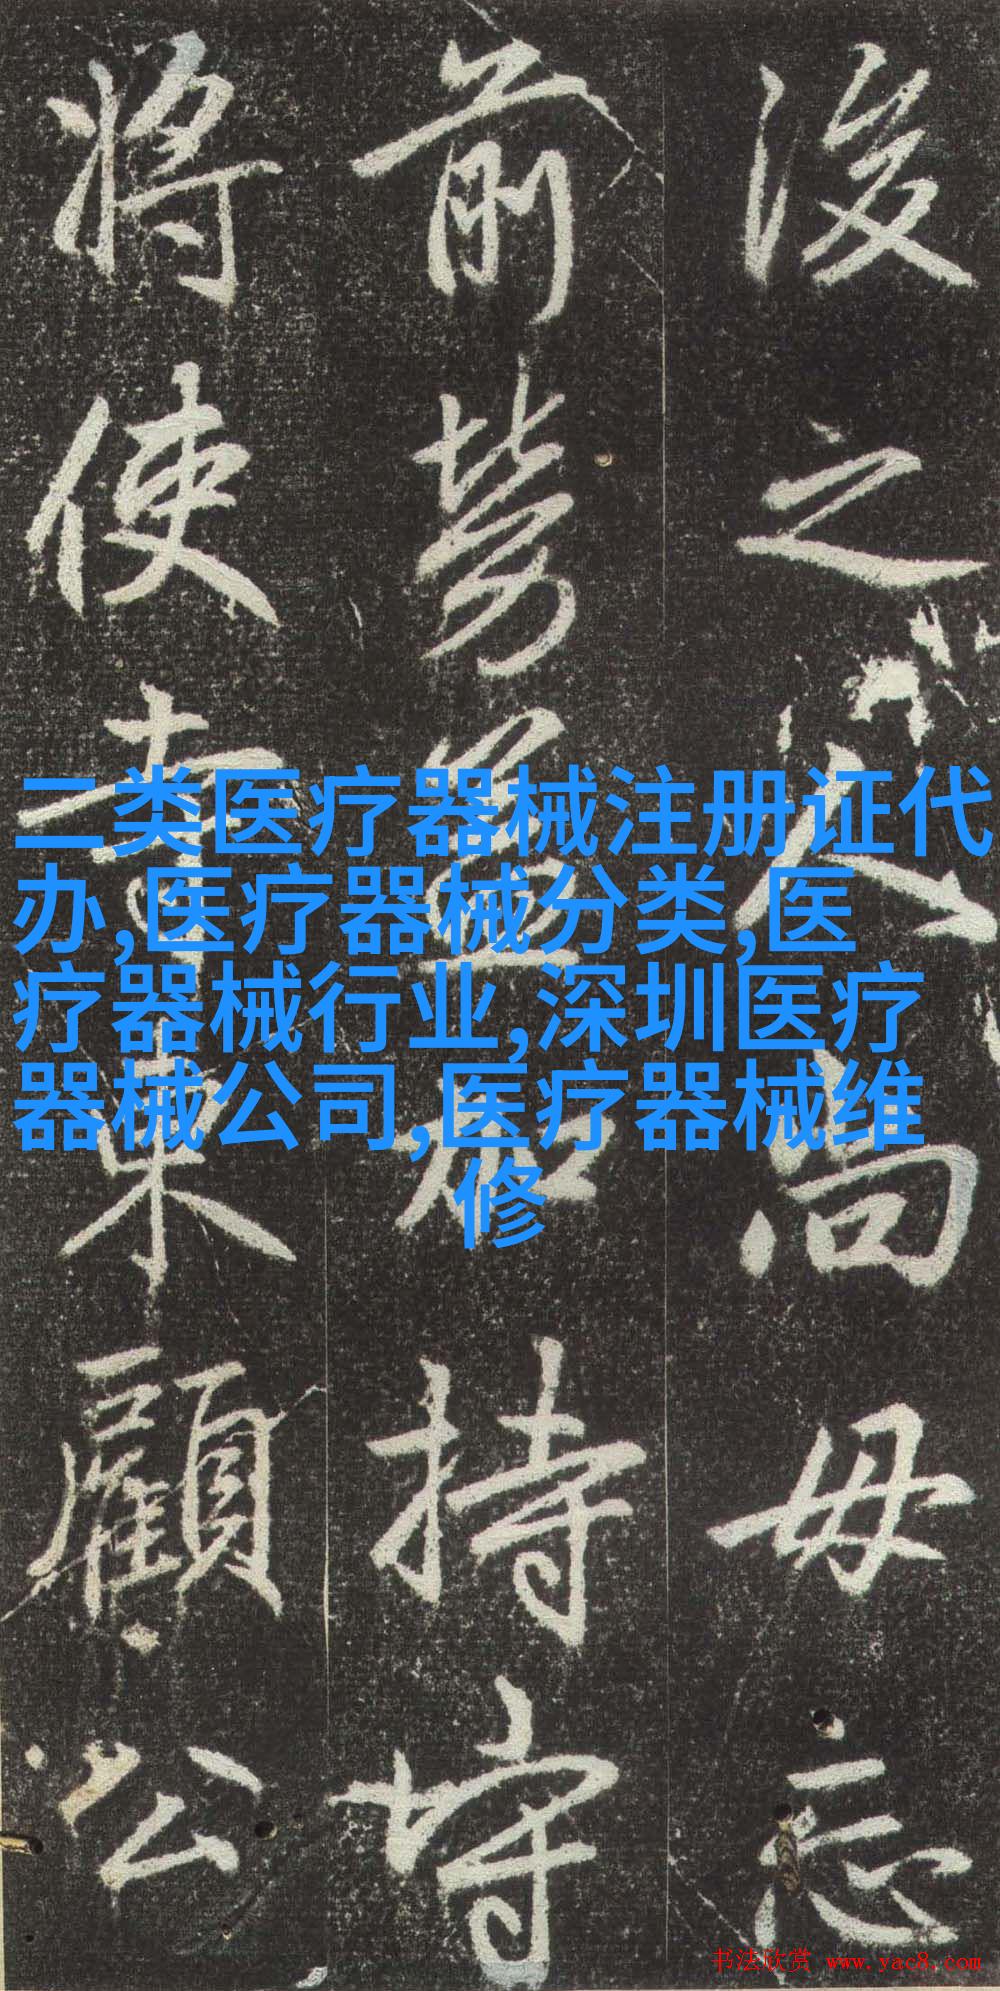 後之人尚毋忘
前勞益加持守
将使来顧公
二类医疗器械注册证代
办,医疗器械分类,医
疗器械行业,深圳医疗
器械公司,医疗器械维
修
书法欣赏 www.yac8.com